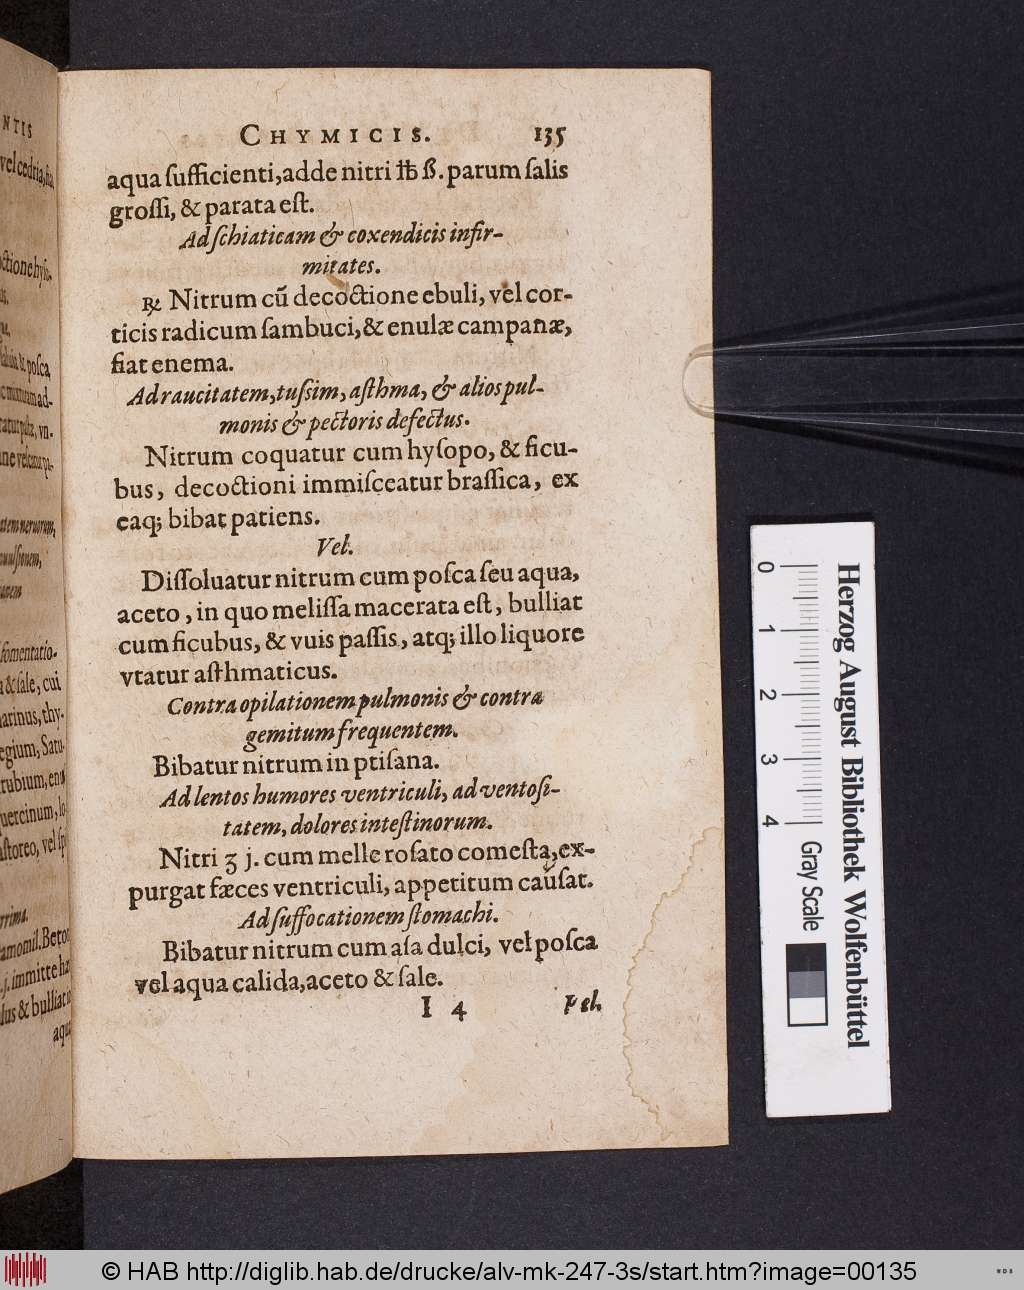 CHYMICIS. 135
aqua ſufficienti, adde nitri ℔ ß. parum ſalis
groſſi, & parata eſt.
Ad ſchiaticam & coxendicis infir-
mitates.
℞ Nitrum cū decoctione ebuli, vel cor-
ticis radicum ſambuci, & enulæ campanæ,
fiat enema.
Ad raucitatem, tuſsim, aſthma, & alios pul-
monis & pectoris defectus.
Nitrum coquatur cum hyſopo, & ficu-
bus, decoctioni immiſceatur braſſica, ex
eaq; bibat patiens.
Vel.
Diſſoluatur nitrum cum poſca ſeu aqua,
aceto, in quo meliſſa macerata eſt, bulliat
cum ficubus, & vuis paſſis, atq; illo liquore
vtatur aſthmaticus.
Contra opilationem pulmonis & contra
gemitum frequentem.
Bibatur nitrum in ptiſana.
Ad lentos humores ventriculi, ad ventoſi-
tatem, dolores inteſtinorum.
Nitri ʒ j. cum melle roſato comeſta, ex-
purgat fæces ventriculi, appetitum cauſat.
Ad ſuffocationem ſtomachi.
Bibatur nitrum cum aſa dulci, vel poſca
vel aqua calida, aceto & ſale.
I 4 Vel.
NTIS
vel cedria,
ctione hyſo-
& poſca
vn-
fomentatio-
& ſale, cui
arinus, thy-
egium, Satu-
rubium,
uercinum,
aſtoreo, vel
amomil. Beton
j. immitte
lus & bulliat
aqua
0 1 2 3 4
Gray Scale
Herzog August Bibliothek Wolfenbüttel
© HAB http://diglib.hab.de/drucke/alv-mk-247-3s/start.htm?image=00135